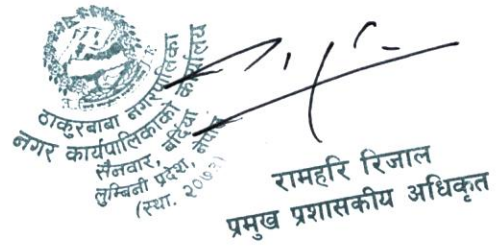 ठाकुरबाबा नगरपालिका
नगर कार्यपालिकाको कार्यालय
सैनवार, बर्दिया
लुम्बिनी प्रदेश, नेपाल
(स्था.
रामहरि रिजाल
प्रमुख प्रशासकीय अधिकृत